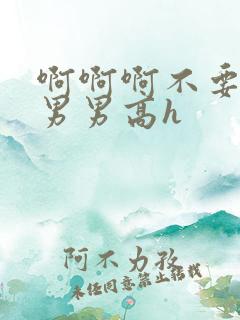 啊啊啊不要
男男高h
阿不力孜
未经同意禁止转载